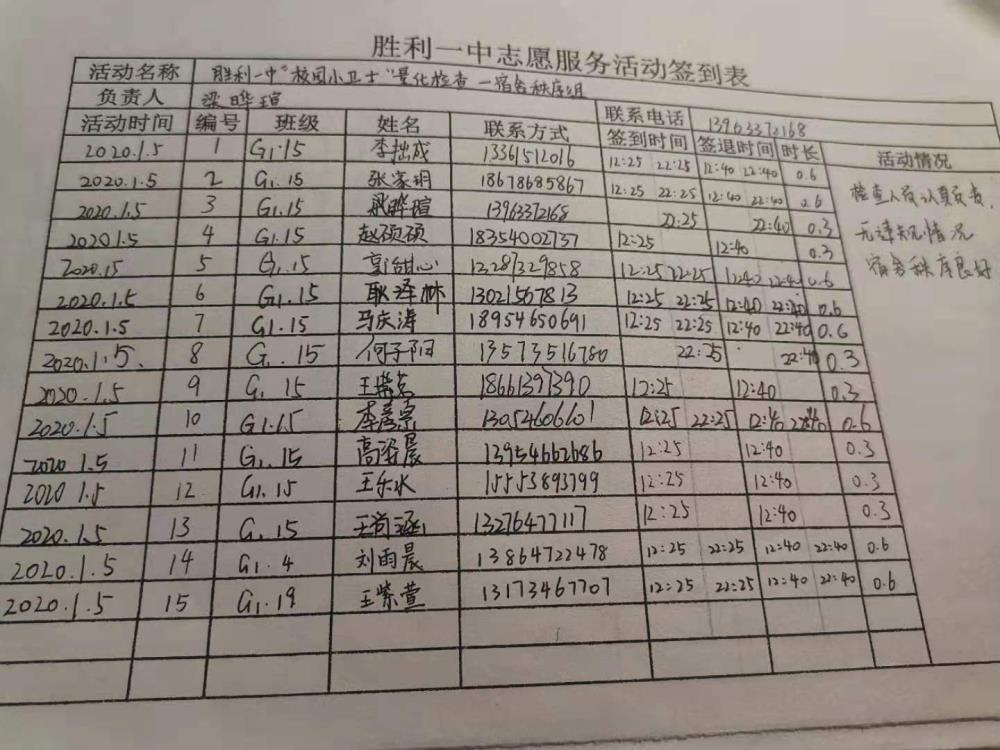 胜利一中志愿服务活动签到表
活动名称 胜利一中"校园小卫士"量化检查—宿舍秩序组
负责人 梁晔瑄 联系电话 13963372168
活动时间 编号 班级 姓名 联系方式 签到时间 签退时间 时长 活动情况
2020.1.5 1 G1.15 李拙成 13361512016 12:25 22:25 12:40 22:40 0.6
2020.1.5 2 G1.15 张家玥 18678685867 12:25 22:25 12:40 22:40 0.6
2020.1.5 3 G1.15 梁晔瑄 13963372168 22:25 22:40 0.3
2020.1.5 4 G1.15 赵硕硕 18354002737 12:25 12:40 0.3
2020.15 5 G1.15 甜心 13287329858 12:25 22:25 12:40 22:40 0.6
2020.1.5 6 G1.15 耿泽林 13021567813 12:25 22:25 12:40 22:40 0.6
2020.1.5 7 G1.15 马庆涛 18954650691 12:25 22:25 12:40 22:40 0.6
2020.1.5. 8 G1.15 何子阳 13573516780 22:25 22:40 0.3
2020.1.5 9 G1.15 王紫 18661397390 12:25 12:40 0.3
2020.1.5 10 G1.15 李彦 13054606601 12:25 22:25 12:40 22:40 0.6
2020 1.5 11 G1.15 高晨 13954662686 12:25 12:40 0.3
2020 1.5 12 G1.15 王乐水 15553893799 12:25 12:40 0.3
2020.1.5 13 G1.15 王尚涵 13276477117 12:25 12:40 0.3
2020.1.5 14 G1.4 刘雨晨 13864722478 12:25 22:25 12:40 22:40 0.6
2020.1.5 15 G1.19 王紫萱 13173467707 12:25 22:25 12:40 22:40 0.6
检查人员认真负责,
无违规情况
宿舍秩序良好